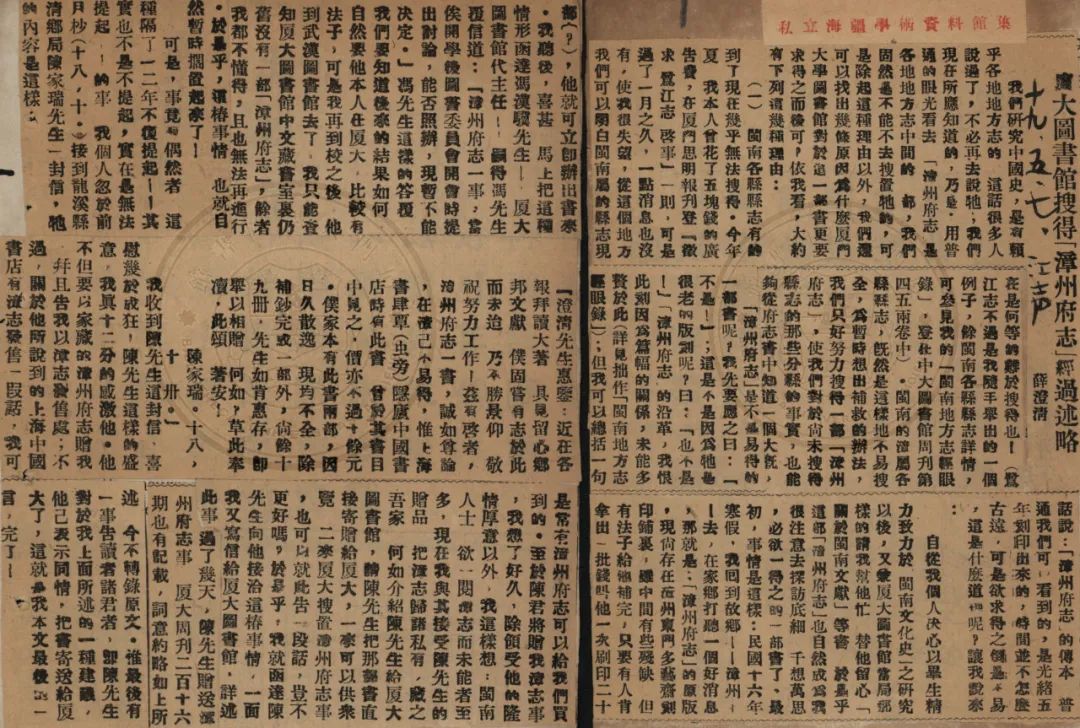 私立海疆學術資料館集
廈大圖書館搜得「漳州府志」經過述略
薛澄清
十九、五、七、
我們研究中國史，是有賴
乎各地地方志的　這話很多人
說過了，不必再去說牠；我們
現在所應知道的，乃是．用普
通的眼光看去　「漳州府志」是
各地地方志中間的　部，我們
固然是不能不去搜置牠的，可
是除起這種理由以外，我們還
可以找出幾條原因爲什麽廈門
大學圖書館對於這一部書更要
求得之而後可，依我看，大約
有下列這幾種理由：
(一)　閩南各縣縣志有的
到了現在幾乎無法搜得。今年
夏　我本人曾花了五塊錢的廣
告費，在廈門思明報刊登「徵
求鷺江志　啓事」一則，可是
過了一月之久，一點消息也沒
有，使我很失望，從這個地方
我們可以明白閩南屬的縣志現
在是何等的難於搜得也！(鷺
江志不過是我隨手舉出的一個
例子，餘閩南各縣縣志詳情，
可參見我的「閩南地方志經眼
錄」，登在中大圖書館周刊第
四五兩卷中)。閩南的漳屬各
縣縣志，旣然是這樣地不易搜
全，爲暫時想出補救的辦法，
我們只好努力搜得一部「漳州
府志」，使我們對於尚未搜得
縣志的那些分縣的事實，也能
夠從府志書中知道一個大槪，
「漳州府志」是不易得的
一部書呢？我先要應之曰：「
不是！」；這是不是因爲牠是
很老的版刻呢？曰：「也不是
「漳州府志」的沿革，我恨
此刻因爲篇幅的關係，未能多
贅於此(詳見拙作「閩南地方志
經眼錄」；但我可以總括一句
話說：「漳州府志」的傳本　普
通我們可以看到的，是光緒五
年刻印出來的，時間並不怎麼
古遠，可是欲求得之倒是不易
，這是什麽道呢？讓我說來
自從我個人決心以畢生精
力致力於「閩南文化史」之研究
以後，又兼廈大圖書館當局那
樣的請我幫他忙　替他留心「
關於閩南文獻」等書　於是乎
這部「漳州府志」也自然成爲我
很注意去探訪底細　千想萬思
，必欲一得之的一部書了，最
初，事情是這樣：民國十六年
寒假，我回到故鄉——漳州—
—去，在家鄉打聽一個好消息
，那就是：「漳州府志」的原版
，現尚存在漳州東門多藝齋刻
印舖裏，中間有些殘缺　但
有法子給牠補完，只要有人肯
拿出一批錢叫他一次刷印二十
部(？)，他就可立卽辦出書來
。我聽後，喜甚　馬上把這種
情形函達馮漢驥先生—廈大
圖書館代主任—嗣得馮先生
覆信道：「漳州府志一事，當
俟開學後圖書委員會開會時提
出討論，能否照辦，現暫不能
決定。」馮先生這樣的答覆
我們要知道後來的結果如何
自然要本人在廈大，比較有
法子，可是我再到校之後　他
到武漢圖書館去了。我只能查
知廈大圖書館中文藏書室裏仍
舊沒有一部「漳州府志」，餘者
我都不懂得，且也無法再進行
。於是乎，這樁事情　也就自
然暫時擱置起來了！
可是，事竟有偶然者　這
種隔了一二年不復提起——其
實也不是不提起，實在是無法
提起——的事　我個人忽於前
月杪(十八，十，)接到龍溪縣
清鄉局陳家瑞先生一封信，牠
的內容是這樣：
「澄清先生惠鑒：近在各
報拜讀大著　具見留心鄉
邦文獻　僕固嘗有志於此
而未迨　乃不勝景仰　敬
祝努力工作！茲有啓者，
漳州府志一書，誠如尊論
，在漳已不易得，惟上海
書肆草（虫旁）隱廬中國書
店時有此書　曾於其書目
中見之，價亦不過十餘元
。僕家本有此書兩部，因
日久散逸　現均不全　除
補鈔完成一部外，尚餘十
九冊，先生如肯惠存，卽
舉以相贈　何如，草此奉
瀆，此頌　著安！
陳家瑞。十八，
十　卅。」
我收到陳先生這封信，喜
慰幾於成狂，陳先生這樣的盛
意，我眞十二分的感激他。他
不但要以家藏的漳州府志贈我
，幷且告我以漳志發售處；不
過，關於他所說到的上海中國
書店有漳志發售一段話，我可
是常有漳州府志可以給我們買
到的。至於陳君將贈我漳志事
，我想了好久，除領受他的隆
情厚意以外，我這樣想：閩南
人士　欲一閱漳志而未能者至
多，現在我與其接受陳先生的
贈品　把漳志歸諸私有，藏之
吾家　何如介紹陳先生給廈大
圖書館，請陳先生把那部書直
接寄贈給廈大，一來可以供衆
覽　二來廈大搜置漳州府志事
，也可以就此告一段落，豈不
更好嗎？於是乎，我就函達陳
先生向他接洽這樁事情，一面
我又寫信給廈大圖書館，詳述
此事　過了幾天，陳先生贈送漳
州府志事　廈大周刊二百十六
期也有記載，詞意約略如上所
述　今不轉錄原文。惟最後有
一事告讀者諸君者，卽陳先生
對於我上面所述的一種建議，
他已表示同情，把書寄送給廈
大了，這就是我本文最後的一
言，完了！